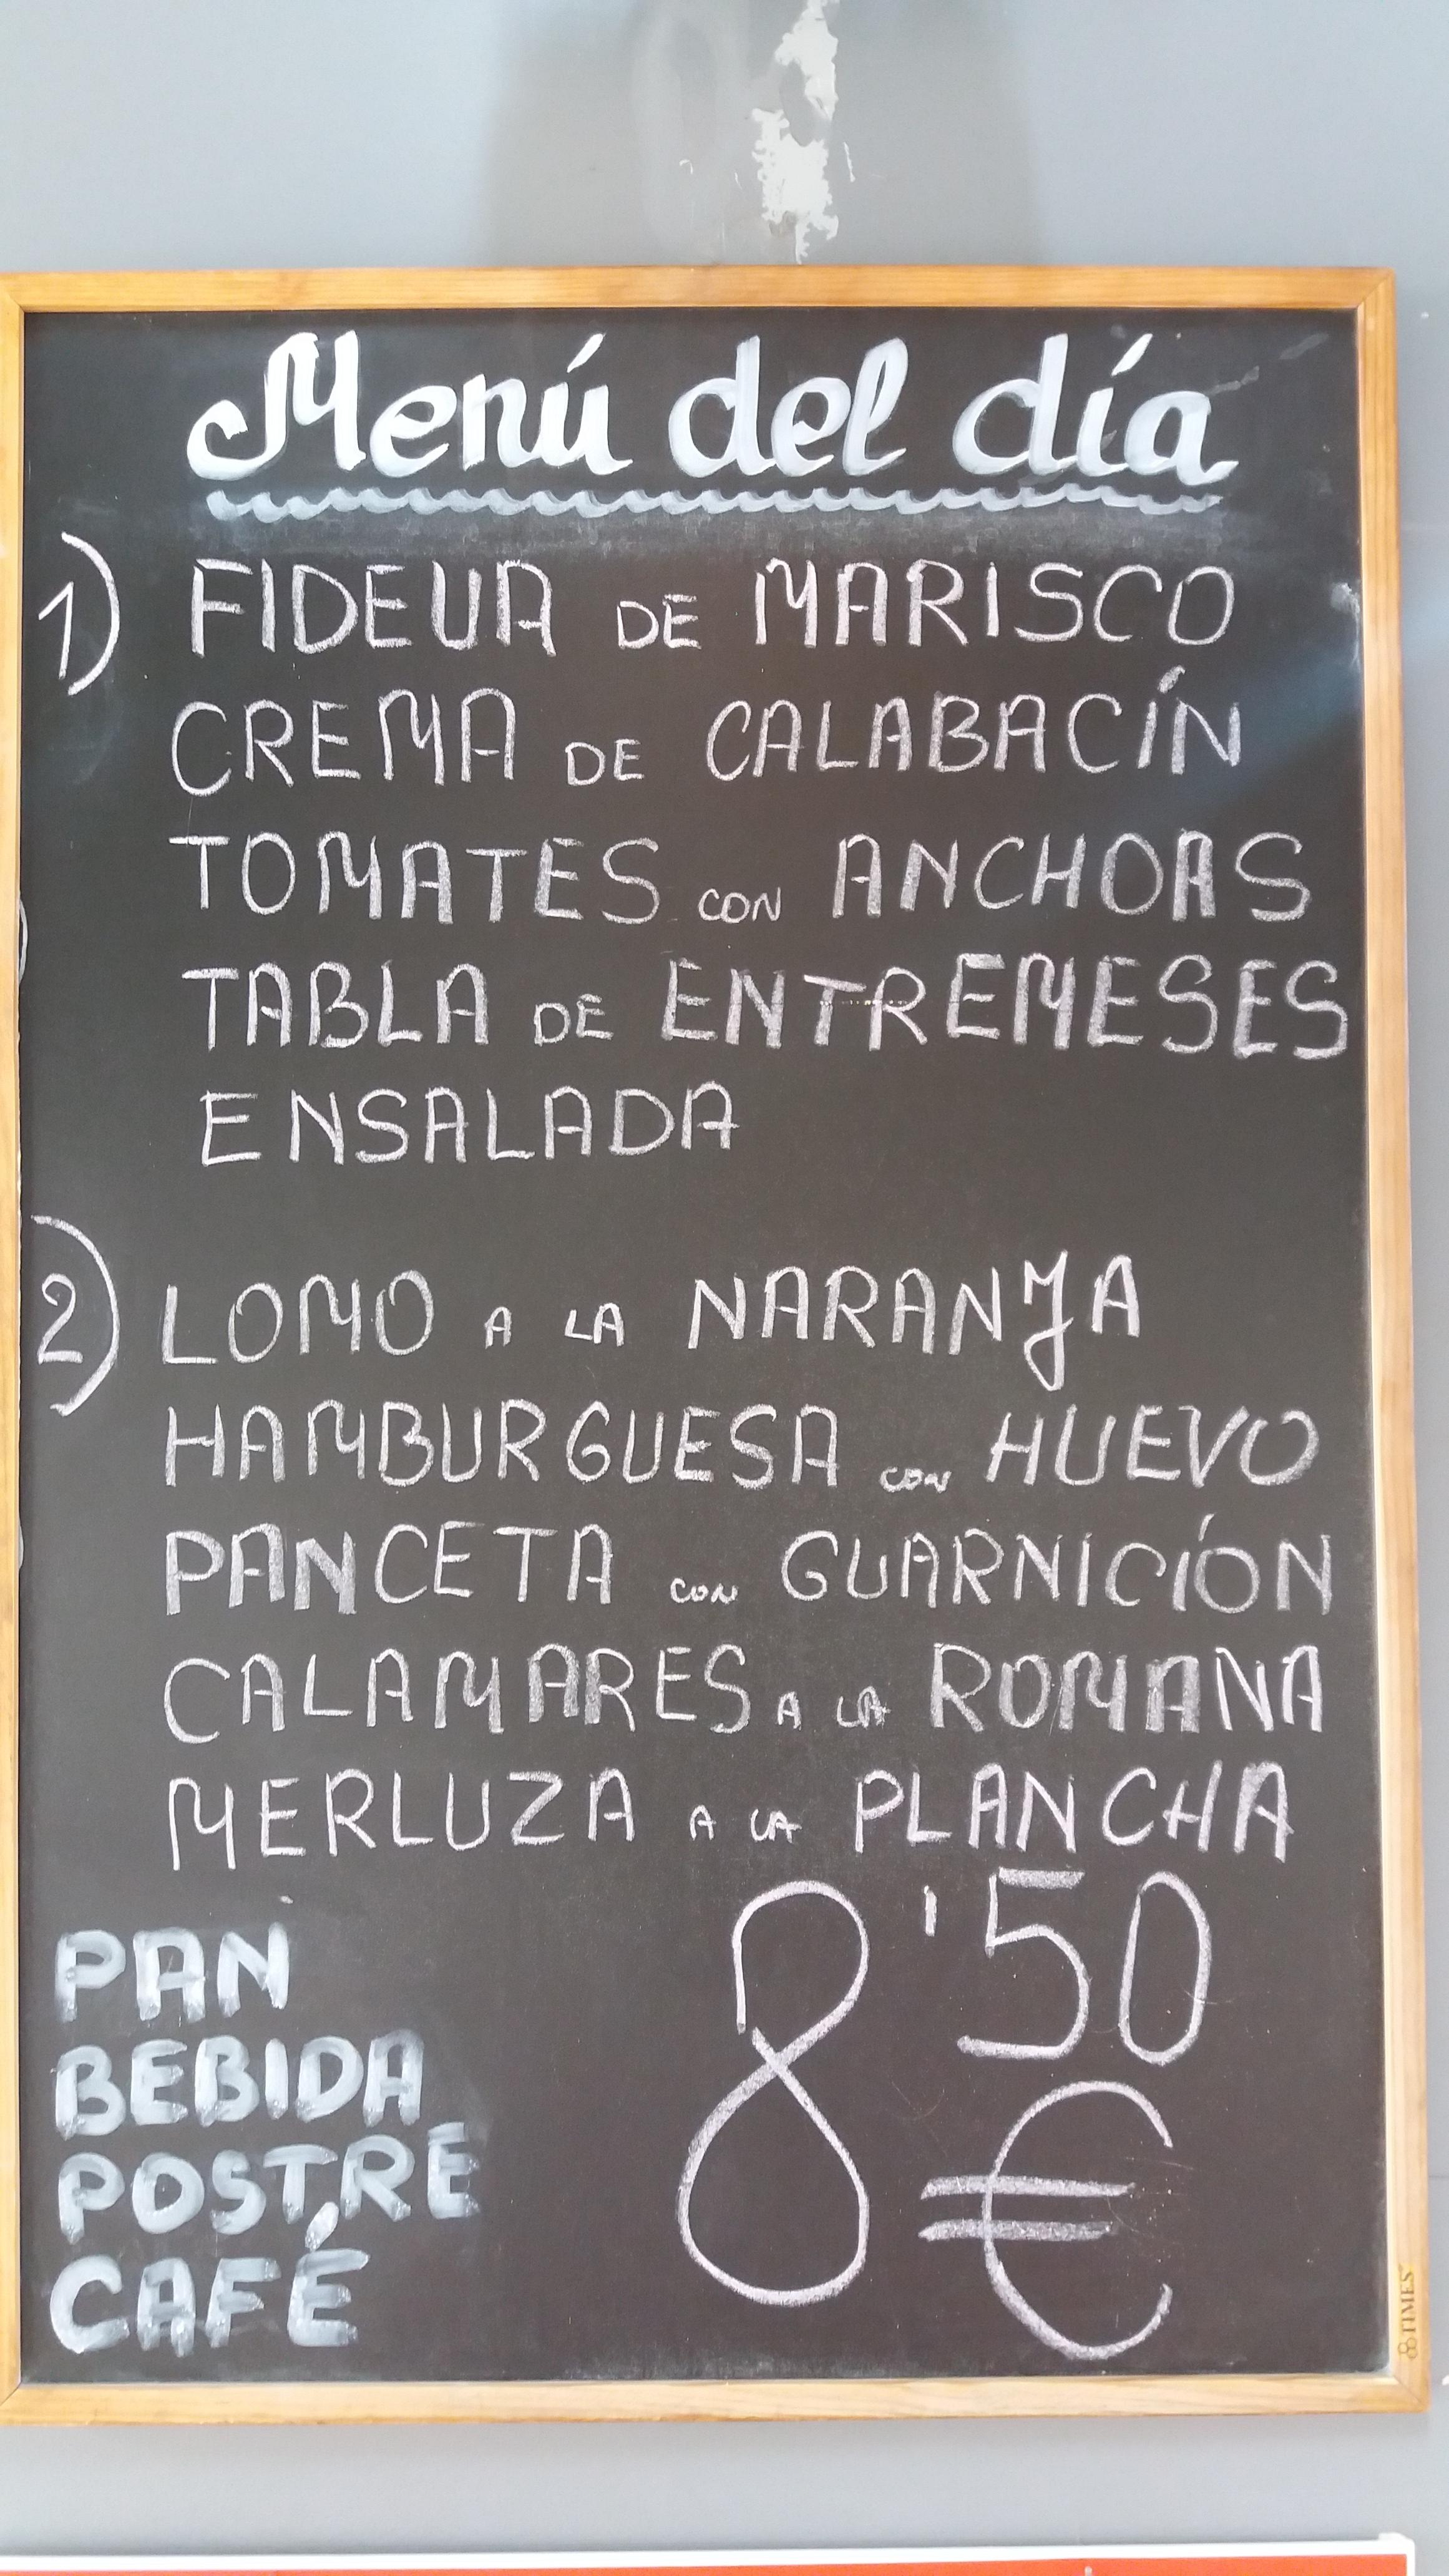 Menú del día
1) FIDEUA DE MARISCO
CREMA DE CALABACÍN
TOMATES CON ANCHOAS
TABLA DE ENTREMESES
ENSALADA
2) LOMO A LA NARANJA
HAMBURGUESA CON HUEVO
PANCETA CON GUARNICIÓN
CALAMARES A LA ROMANA
MERLUZA A LA PLANCHA
PAN
BEBIDA
POSTRE
CAFÉ
8'50
€
TIMES